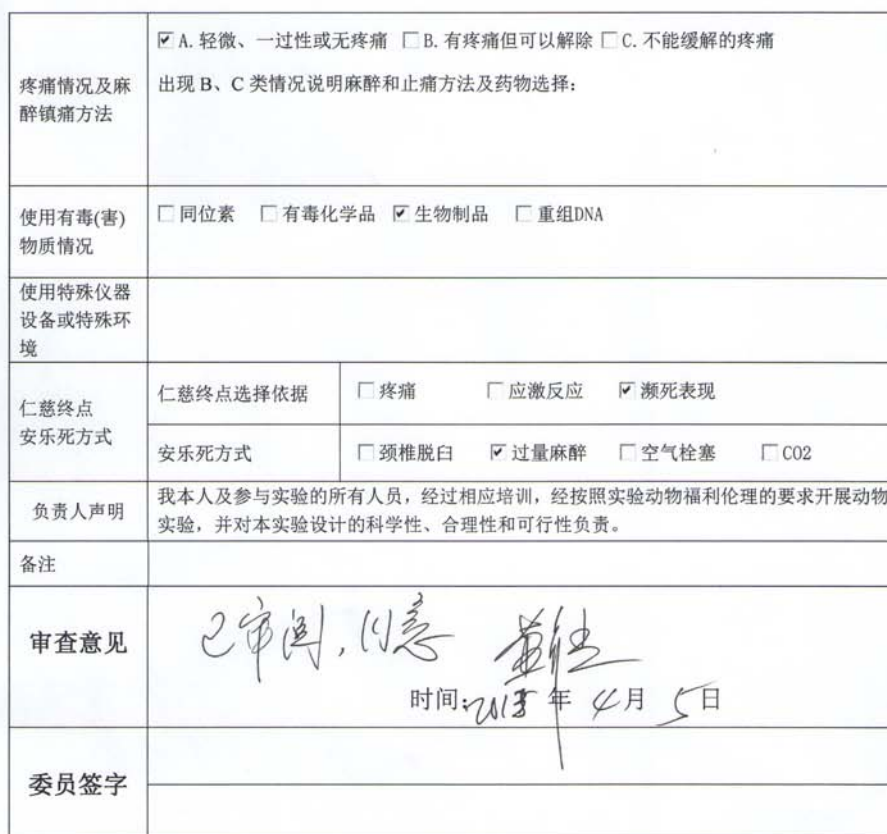 ☑A.轻微、一过性或无疼痛 □B.有疼痛但可以解除 □C.不能缓解的疼痛
疼痛情况及麻
醉镇痛方法
出现 B、C 类情况说明麻醉和止痛方法及药物选择：
使用有毒(害)
物质情况
□同位素 □有毒化学品 ☑生物制品 □重组DNA
使用特殊仪器
设备或特殊环
境
仁慈终点
安乐死方式
仁慈终点选择依据 □疼痛 □应激反应 ☑濒死表现
安乐死方式 □颈椎脱臼 ☑过量麻醉 □空气栓塞 □CO2
负责人声明
我本人及参与实验的所有人员，经过相应培训，经按照实验动物福利伦理的要求开展动物
实验，并对本实验设计的科学性、合理性和可行性负责。
备注
审查意见
已审阅，同意
时间: 年 4月 5日
委员签字